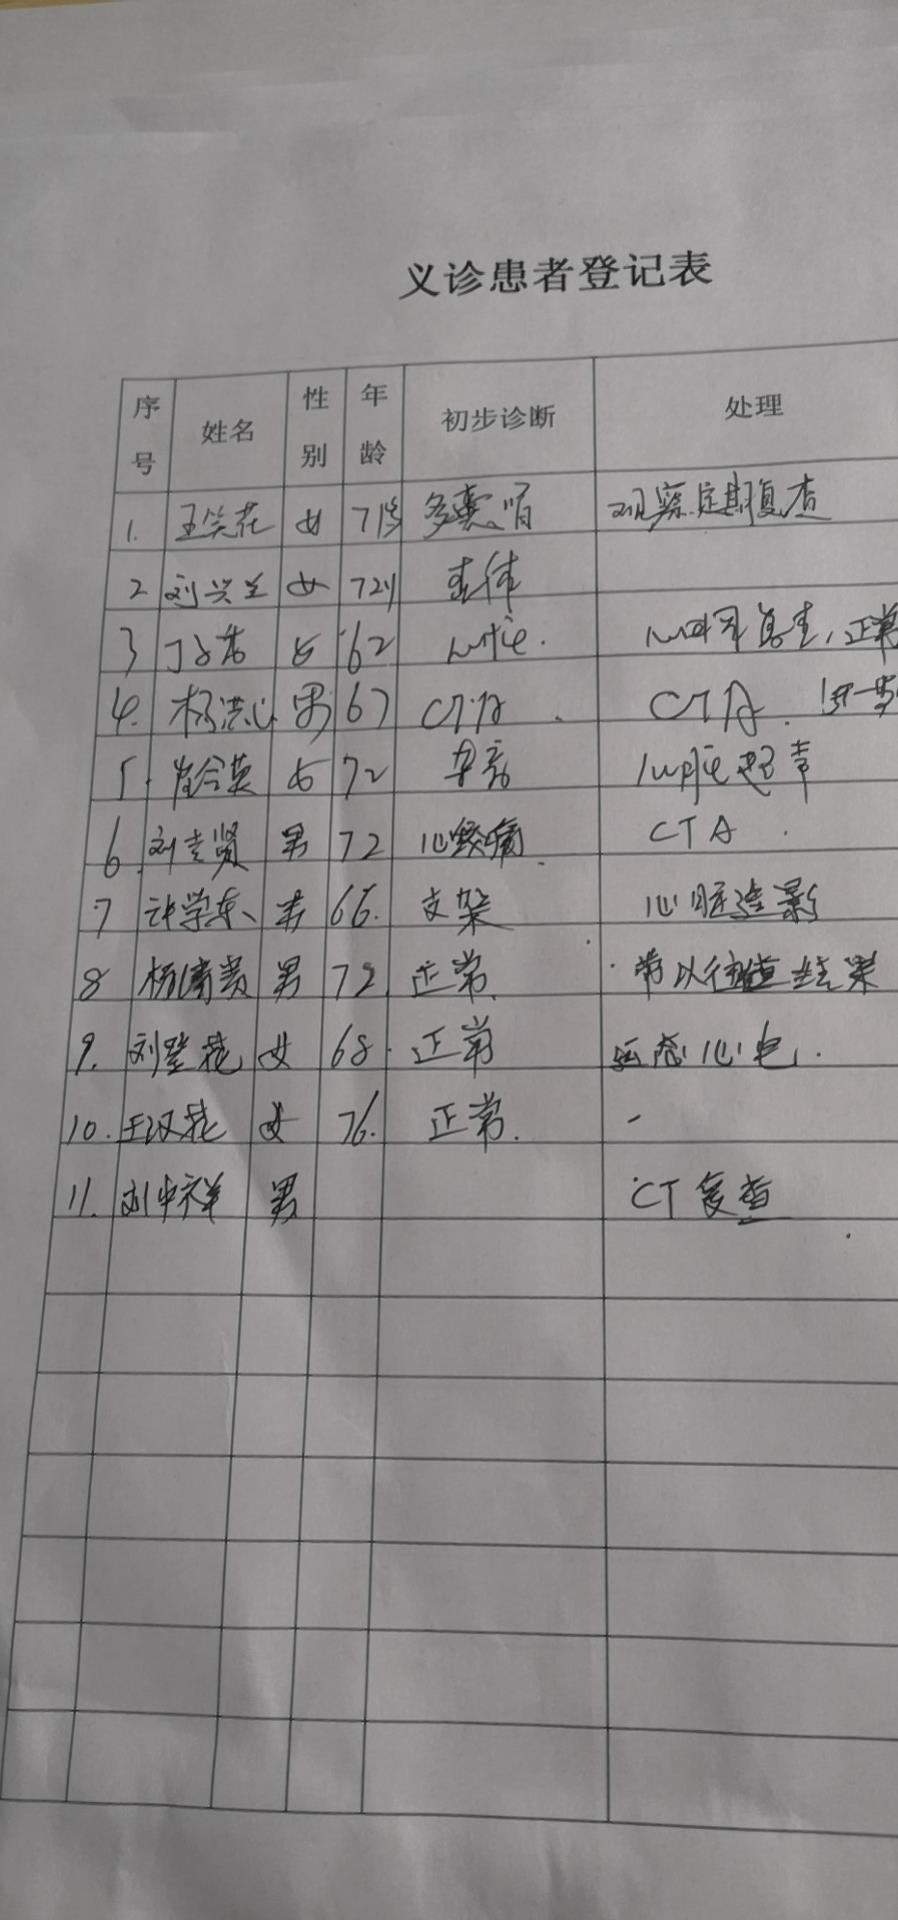 义诊患者登记表
序号 姓名 性别 年龄 初步诊断 处理
1. 王笑花 女 71岁 多囊肾 观察定期复查
2 刘兴兰 女 72岁
3 女 62 正常
4. 杨洪心 男 67 CTA CTA. 进一步
5. 女 72 杂音 心脏超声
6 刘志贤 男 72 心绞痛. CTA.
7 许学东 男 66. 支架 心脏造影
8 杨清贵 男 72 正常 带以往检查结果
9. 刘登花 女 68. 正常 动态心电.
10. 王汉花 女 76. 正常. -
11. 刘中祥 男 CT复查